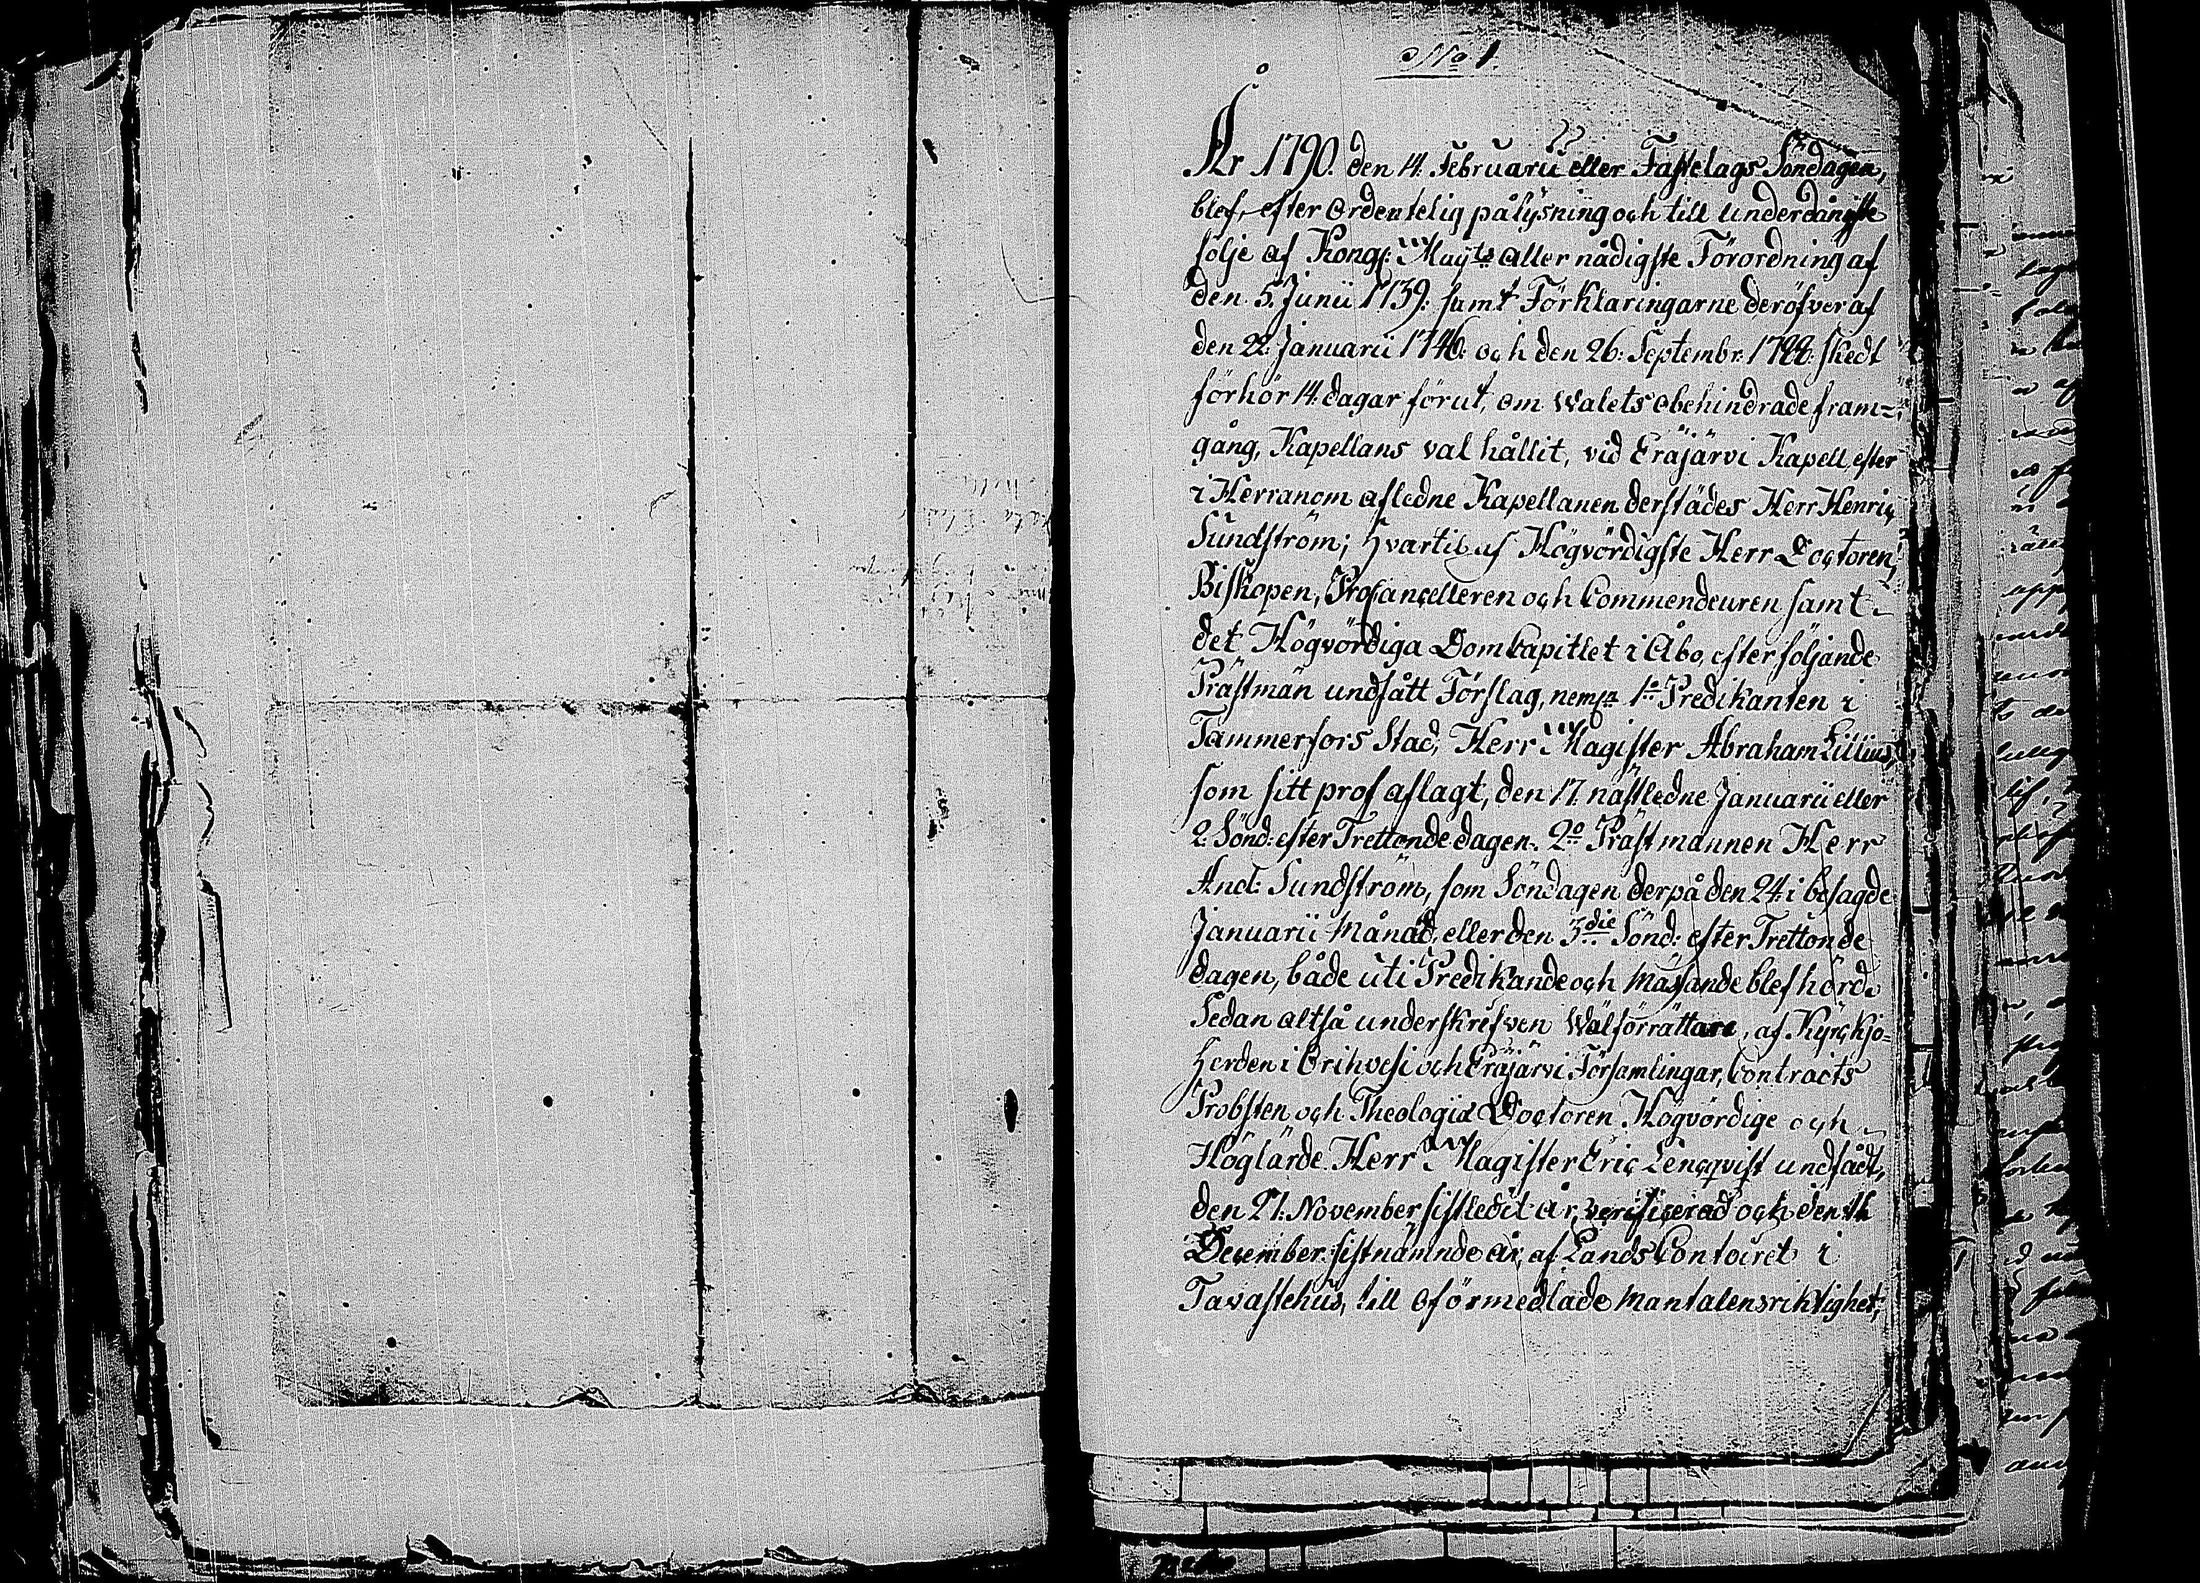 No 1.
År 1790. den 14. Februarii eller Fastelags Söndagen,
blef, efter ordentelig pålysning och till underdånigste
följe af Kongl: Maytts aller nådigste Förordning af
den 5. Junii 1739. samt Förklaringarne deröfver af
den 22. Januarii 1746. och den 26. Septembr. 1788. skedt
förhör 14. dagar förut, om Walets obehindrade fram=
gång, Kapellans val hållit, vid Eräjärvi Kapell, efter
i Herranom afledne Kapellanen derstädes Herr Henric
Sundström; hvartil af Högvördigste Herr Doctoren,
Biskopen, Procancelleren och Commendeuren samt
det Högvördiga Domkapitlet i Åbo, efter följande
Prästmän undfått Förslag, neml: 1o Predikanten i
Tammerfors Stad, Herr Magister Abraham Lilius,
som sitt prof aflagt, den 17. nästledne Januarii eller
2. Sönd: efter Trettonde dagen. 2o Prästmannen Herr
And: Sundström, som Söndagen derpå den 24. i besagde
Januarii Månad, eller den 3die Sönd: efter Trettonde
dagen, både uti Predikande och Mässande blef hörd.
Sedan altså underskrifven Walförrättare, af Kyrckjo=
herden i Orihvesi och Eräjärvi Församlingar, Contracts
Probsten och Theologiæ Doctoren Högvördige och
Höglärde Herr Magister Eric Lencqvist undfådt,
den 27. November sistledit år verificerad och den
December sistnämnde år, af Lands Contoiret i
Tavastehus, till oförmedlade Mantalens riktighet,